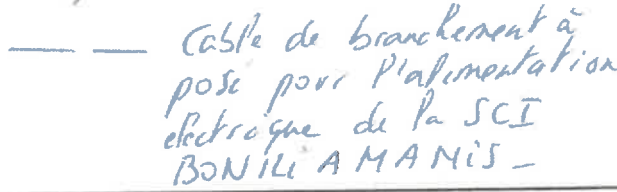 Cable de branchement à
pose pour l'alimentation
electrique de la SCI
BONILI AMANIS